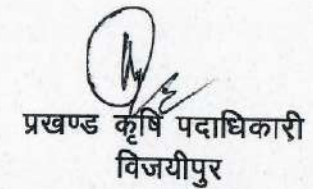 प्रखण्ड कृषि पदाधिकारी
विजयीपुर